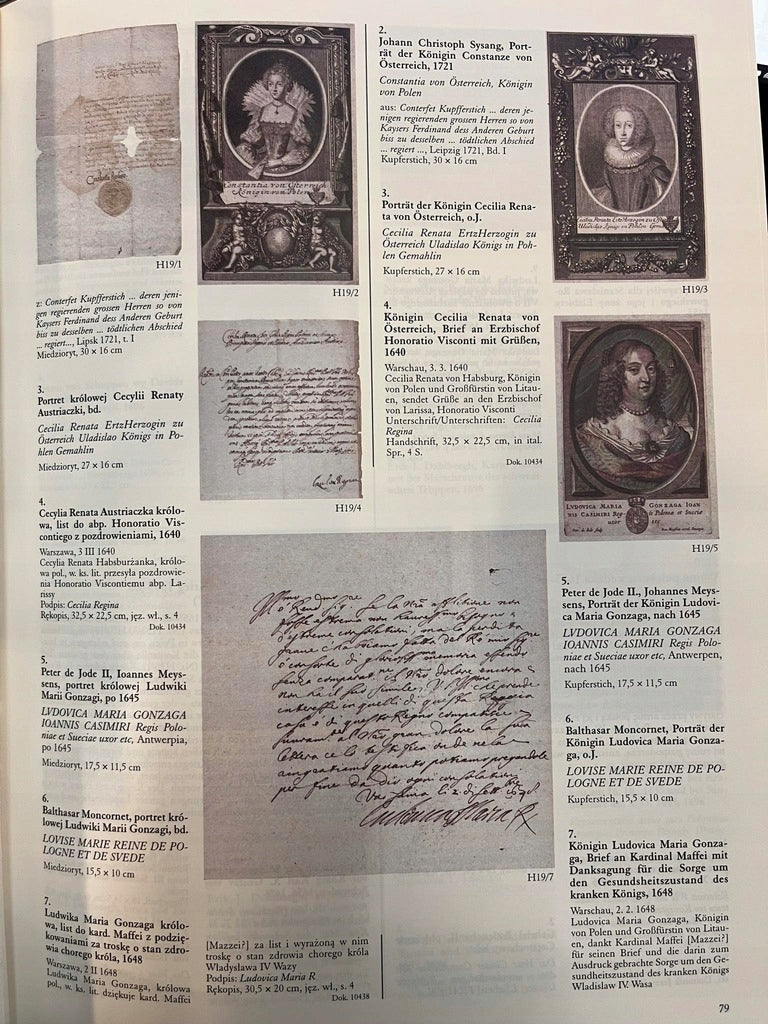 H19/1
z: Conterfet Kupfferstich ... deren jeni-
gen regierenden grossen Herren so von
Kaysers Ferdinand dess Anderen Geburt
biss zu desselben ... tödtlichen Abschied
... regiert..., Lipsk 1721, t. I
Miedzioryt, 30 x 16 cm
3.
Portret królowej Cecylii Renaty
Austriaczki, bd.
Cecilia Renata ErtzHerzogin zu
Österreich Uladislao Königs in Poh-
len Gemahlin
Miedzioryt, 27 x 16 cm
4.
Cecylia Renata Austriaczka królo-
wa, list do abp. Honoratio Vis-
contiego z pozdrowieniami, 1640
Warszawa, 3 III 1640
Cecylia Renata Habsburżanka, królo-
wa pol., w. ks. lit. przesyła pozdrowie-
nia Honoratio Viscontiemu abp. La-
rissy
Podpis: Cecilia Regina
Rękopis, 32,5 x 22,5 cm, jęz. wł., s. 4
Dok. 10434
5.
Peter de Jode II, Ioannes Meys-
sens, portret królowej Ludwiki
Marii Gonzagi, po 1645
LVDOVICA MARIA GONZAGA
IOANNIS CASIMIRI Regis Polo-
niae et Sueciae uxor etc, Antwerpia,
po 1645
Miedzioryt, 17,5 x 11,5 cm
6.
Balthasar Moncornet, portret kró-
lowej Ludwiki Marii Gonzagi, bd.
LOVISE MARIE REINE DE PO-
LOGNE ET DE SVEDE
Miedzioryt, 15,5 x 10 cm
7.
Ludwika Maria Gonzaga królo-
wa, list do kard. Maffei z podzię-
kowaniami za troskę o stan zdro-
wia chorego króla, 1648
Warszawa, 2 II 1648
Ludwika Maria Gonzaga, królowa
pol., w. ks. lit. dziękuje kard. Maffei
Constantia von Österreich
Königin von Polen
H19/2
H19/4
H19/7
[Mazzei?] za list i wyrażoną w nim
troskę o stan zdrowia chorego króla
Władysława IV Wazy
Podpis: Ludovica Maria R
Rękopis, 30,5 x 20 cm, jęz. wł., s. 4
Dok. 10438
2.
Johann Christoph Sysang, Port-
rät der Königin Constanze von
Österreich, 1721
Constantia von Österreich, Königin
von Polen
aus: Conterfet Kupfferstich ... deren je-
nigen regierenden grossen Herren so von
Kaysers Ferdinand des Anderen Geburt
biss zu desselben ... tödtlichen Abschied
... regiert ..., Leipzig 1721, Bd. I
Kupferstich, 30 x 16 cm
3.
Porträt der Königin Cecilia Rena-
ta von Österreich, o.J.
Cecilia Renata ErtzHerzogin zu
Österreich Uladislao Königs in Poh-
len Gemahlin
Kupferstich, 27 x 16 cm
4.
Königin Cecilia Renata von
Österreich, Brief an Erzbischof
Honoratio Visconti mit Grüßen,
1640
Warschau, 3. 3. 1640
Cecilia Renata von Habsburg, Königin
von Polen und Großfürstin von Litau-
en, sendet Grüße an den Erzbischof
von Larissa, Honoratio Visconti
Unterschrift/Unterschriften: Cecilia
Regina
Handschrift, 32,5 x 22,5 cm, in ital.
Spr., 4 S.
Dok. 10434
Cecilia Renata ErtzHerzogin zu
Uladislao Königs in Pohlen Gemahl
H19/3
LVDOVICA MARIA GONZAGA IOAN
NIS CASIMIRI Reg is Poloniae et Sueciae
uxor etc
H19/5
5.
Peter de Jode II., Johannes Meys-
sens, Porträt der Königin Ludovi-
ca Maria Gonzaga, nach 1645
LVDOVICA MARIA GONZAGA
IOANNIS CASIMIRI Regis Polo-
niae et Sueciae uxor etc, Antwerpen,
nach 1645
Kupferstich, 17,5 x 11,5 cm
6.
Balthasar Moncornet, Porträt der
Königin Ludovica Maria Gonza-
ga, o.J.
LOVISE MARIE REINE DE PO-
LOGNE ET DE SVEDE
Kupferstich, 15,5 x 10 cm
7.
Königin Ludovica Maria Gonza-
ga, Brief an Kardinal Maffei mit
Danksagung für die Sorge um
den Gesundsheitszustand des
kranken Königs, 1648
Warschau, 2. 2. 1648
Ludovica Maria Gonzaga, Königin
von Polen und Großfürstin von Litau-
en, dankt Kardinal Maffei [Mazzei?]
für seinen Brief und die darin zum
Ausdruck gebrachte Sorge um den Ge-
sundheitszustand des kranken Königs
Wladislaw IV. Wasa
79